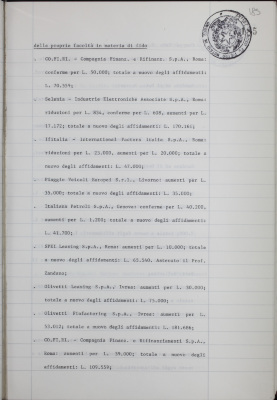 delle proprie facoltà in materia di fido
. CO.FI.RI. - Compagnia Finanz. e Rifinanz. S.p.A., Roma:
conferme per L. 50.000; totale a nuovo degli affidamenti:
L.
. Selenia - Industrie Elettroniche Associate S.p.A., Roma:
riduzioni per L. 804, conferme per L. 628, aumenti per L.
17.172; totale a nuovo degli affidamenti: L. 170.161;
. Ifitalia - International Factors Italia S.p.A.,
riduzioni per L. 25.000, aumenti per L. 20.000; totale a
nuovo degli affidamenti: L. 45.000;
. Piaggio Veicoli Europei S.r.l., Livorno: aumenti per L.
10.000; totale a nuovo degli affidamenti L. 35.000;
. Italiana Petroli S.p.A., Genova: conferme per L. 40.200,
aumenti per L. 1.500; totale a nuovo degli affidamenti:
L. 41.700;
. SPEI Leasing S.p.A., Roma: aumenti per L. 10.000; totale
a nuovo degli affidamenti: L. 65.540. Astenuto il Prof.
. Olivetti Leasing S.p.A., Ivrea: aumenti per L. 30.000;
totale a nuovo degli affidamenti: L. 75.000;
. Olivetti Finfactoring S.p.A., Ivrea: aumenti per L.
55.012; totale a nuovo degli affidamenti: L. 181.686;
. CO.FI.RI. - Compagnia Finanz. e Rifinanziamenti S.p.A.,
Roma: aumenti per L. 39.000; totale a nuovo degli
affidamenti: L. 109.559;